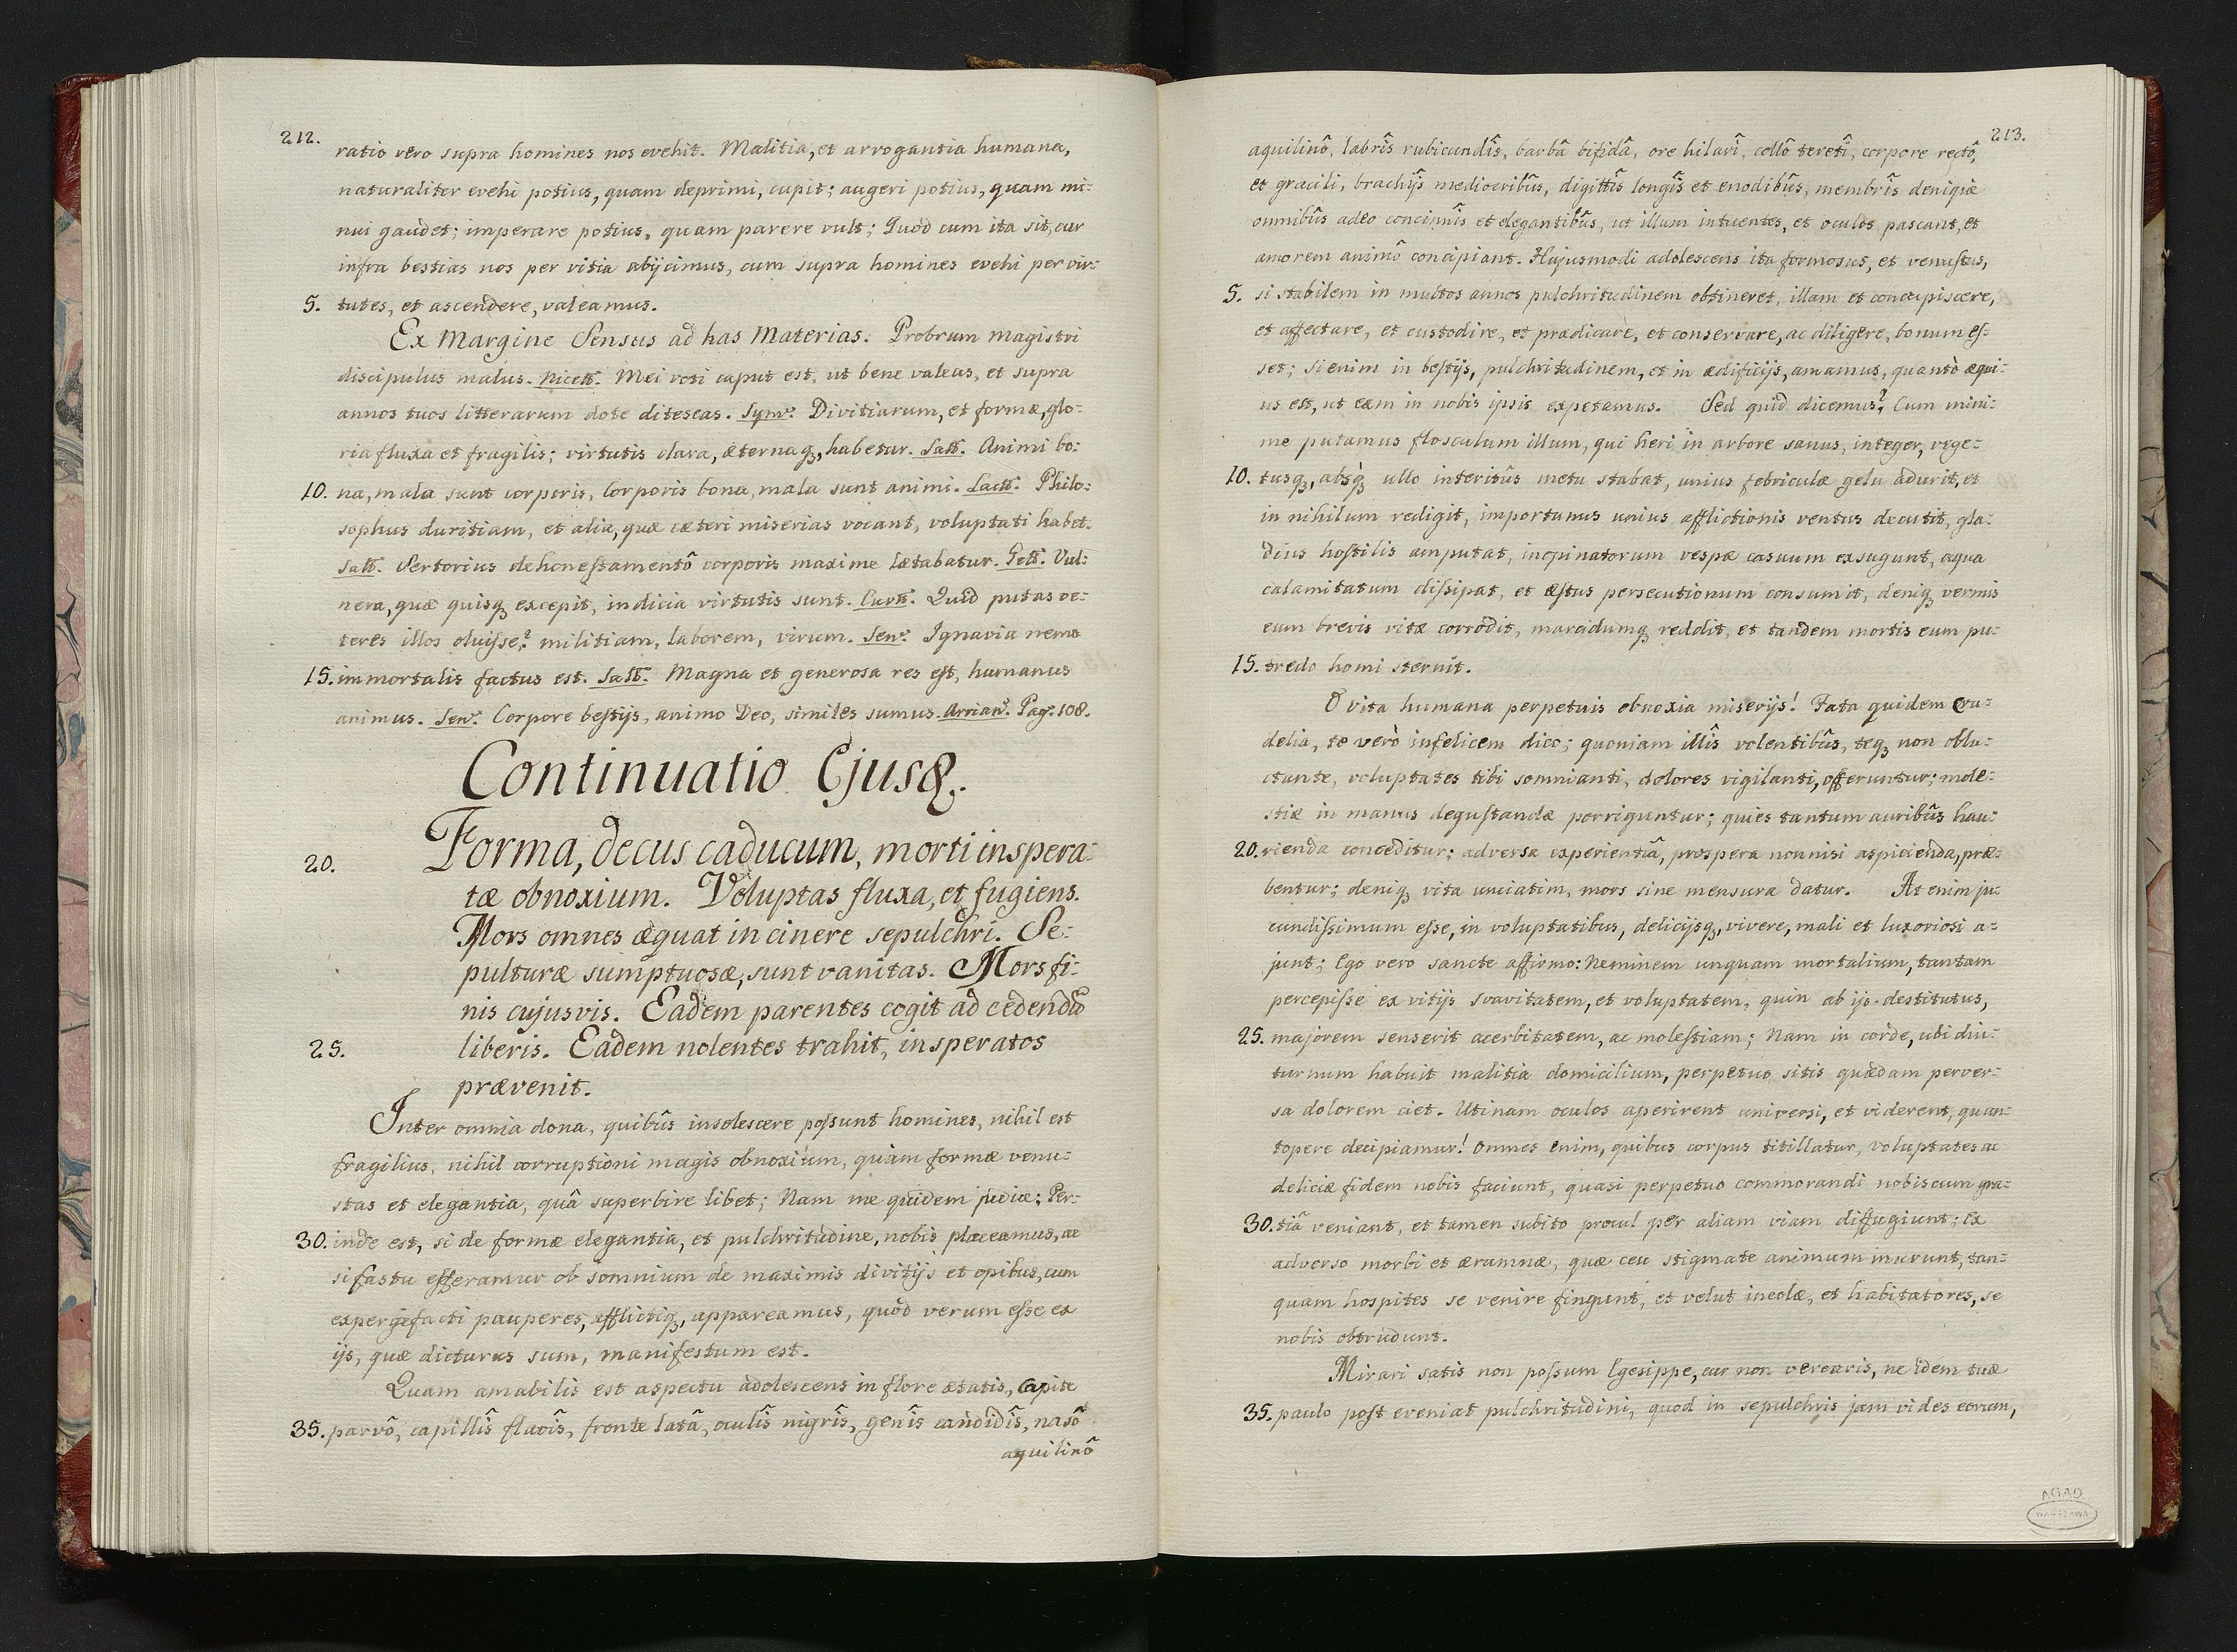 212.
ratio vero supra homines nos evehit. Malitia, et arrogantia humana,
naturaliter evehi potius, quam deprimi, cupit; augeri potius, quam mi:
nui gaudet; imperare potius, quam parere vult; Quod cum ita sit, cur
infra bestias nos per vitia abijcimus, cum supra homines evehi per vir:
5. tutes, et ascendere, valeamus.
Ex Margine Sensus ad has Materias. Probrum magistri
discipulus malus. Nicett. Mei voti caput est, ut bene valeas, et supra
annos tuos litterarum dote ditescas. Sym. Divitiarum, et formæ, glo:
ria fluxa et fragilis; virtutis clara, æternaq, habetur. Sall. Animi bo:
10. na, mala sunt corporis, Corporis bona, mala sunt animi. Lactt. Philo:
sophus duritiam, et alia, quæ cæteri miserias vocant, voluptati habet.
Sall. Sertorius dehonestamentô corporis maxime lætabatur. Gell. Vul:
nera, quæ quisq excepit, indicia virtutis sunt. Curtt. Quid putas ve:
teres illos oluisse? militiam, laborem, virum. Sen. Ignavia nemo
15. immortalis factus est. Sall. Magna et generosa res est, humanus
animus. Sen. Corpore bestijs, animo Deo, similes sumus. Arrian. Pag. 108.
Continuatio Ejusd.
Forma, decus caducum, morti inspera:
20.
tæ obnoxium. Voluptas fluxa, et fugiens.
Mors omnes æquat in cinere sepulchri. Se:
pulturæ sumptuosæ, sunt vanitas. Mors fi:
nis cujusvis. Eadem parentes cogit ad cedendũ
25. liberis. Eadem nolentes trahit, insperatos
prævenit.
Inter omnia dona, quibûs insolescere possunt homines, nihil est
fragilius, nihil corruptioni magis obnoxium, quàm formæ venu:
stas et elegantia, quâ superbire libet; Nam me quidem judice; Per:
30. inde est, si de formæ elegantia, et pulchritudine, nobis placeamus, ac
si fastu efferamur ob somnium de maximis divitijs et opibus, cum
expergefacti pauperes, afflictiq, appareamus, quòd verum esse ex
ijs, quæ dicturus sum, manifestum est.
Quam amabilis est aspectu adolescens in flore ætatis, Capite
35. parvô, capillîs flavîs, fronte latâ, oculîs nigrîs, genîs candidîs, nasô
aquilinô
213.
aquilinô, labrîs rubicundîs, barbâ bifidâ, ore hilarî, collô teretî, corpore rectô,
et gracili, brachijs mediocribûs, digittîs longîs et enodibûs, membrîs deniqiæ
omnibûs adeo concinnîs et elegantibûs, ut illum intuentes, et oculos pascant, et
amorem animô concipiant. Hujusmodi adolescens ita formosus, et venustus,
5. si stabilem in multos annos pulchritudinem obtineret, illam et concupiscere,
et affectare, et custodire, et prædicare, et conservare, ac diligere, bonum es:
set; si enim in bestijs, pulchritudinem, et in ædificijs, amamus, quantò æqui:
us est, ut eam in nobis ipsis expetamus. Sed quid dicemus? Cum mini:
me putamus flosculum illum, qui heri in arbore sanus, integer, vege:
10. tusq, absq ullo interitûs metu stabat, unius febriculæ gelu adurit, et
in nihilum redigit, importunus unius afflictionis ventus decutit, gla:
dius hostilis amputat, inopinatorum vespæ casuum exsugunt, aqua
calamitatum dissipat, et æstus persecutionum consumit, deniq vermis
eum brevis vitæ corrodit, marcidumq reddit, et tandem mortis eum pu:
15. tredo homi sternit.
O vita humana perpetuis obnoxia miserijs! Fata quidem Cru:
delia, te verò infelicem dico; quoniam illîs volentibûs, teq non oblu:
ctante, voluptates tibi somnianti, dolores vigilanti, offeruntur; mole:
stiæ in manus degustandæ porriguntur; quies tantum auribûs hau:
20. rienda conceditur; adversa experientiâ, prospera nonnisi aspicienda, præ:
bentur; deniq vita unciatim, mors sine mensura datur. At enim ju:
cundissimum esse, in voluptatibus, delicijsq, vivere, mali et luxoriosi a:
junt; Ego vero sancte affirmo: Neminem unquam mortalium, tantam
percepisse ex vitijs svavitatem, et voluptatem, quin ab ijs destitutus,
25. majorem senserit acerbitatem, ac molestiam; Nam in corde, ubi diu:
turnum habuit malitia domicilium, perpetuo sitis quædam perver:
sa dolorem ciet. Utinam oculos aperirent universi, et viderent, quan:
topere decipiamur! Omnes enim, quibus corpus titillatur, voluptates ac
deliciæ fidem nobis faciunt, quasi perpetuo commorandi nobiscum gra:
30. tiâ veniant, et tamen subito procul per aliam viam diffugiunt; Ex
adverso morbi et ærumnæ, quæ ceu stigmate animum inurunt, tan:
quam hospites se venire fingunt, et velut incolæ, et habitatores, se
nobis obtrudunt.
Mirari satis non possum Egesippe, cur non verearis, ne idem tuæ
35. paulo post eveniat pulchritudini, quod in sepulchris jam vides eorum,
AGAD
WARSZAWA